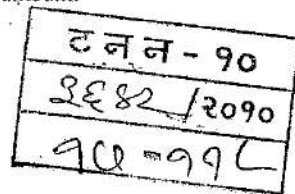 ट न न - १०
३६४२ / २०१०
१७ - ११८